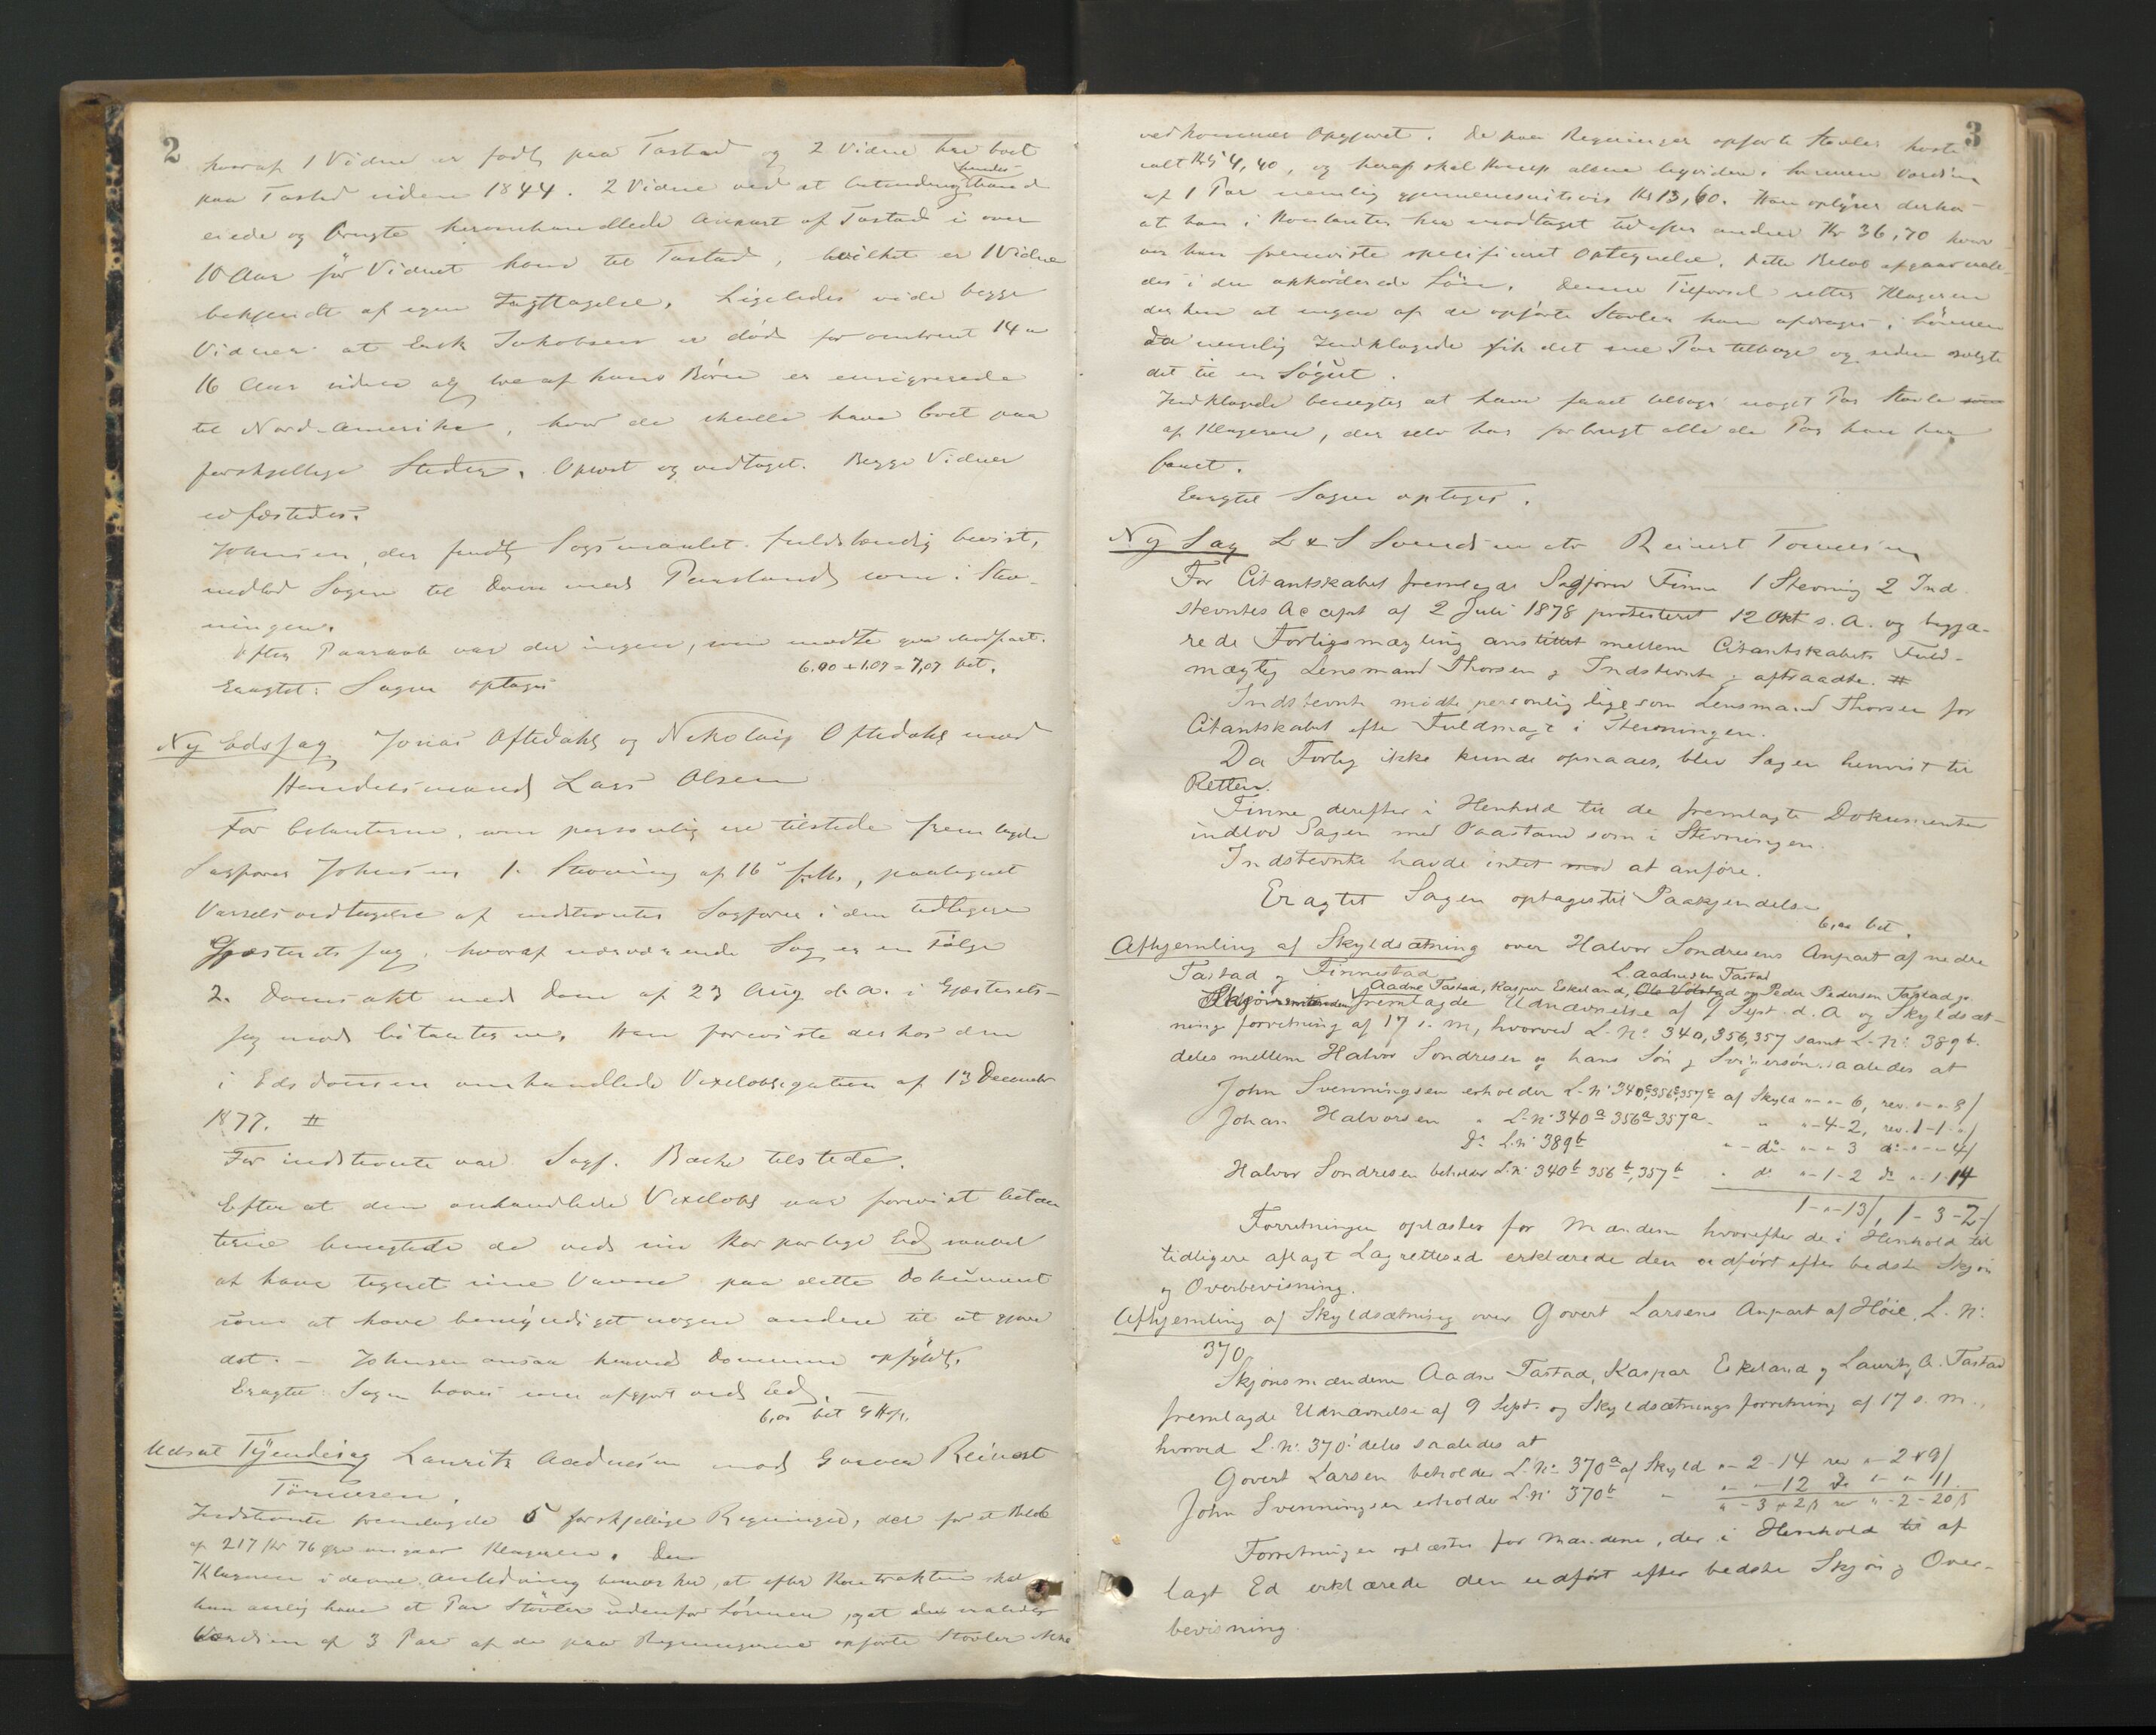 2
hvoraf 1 Vidne er født paa Tastad og 2 Vidne har boet
paa Tastad siden 1844. 2 Vidne ved at hendes Mand
eiede og brugte heromhandlede Anpart af Tastad i over
10 Aar før Vidnet kom til Tastad, hvilket er 1 Vidne
bekjendt af egen Iagttagelse. Ligeledes vide begge
Vidner at Erik Jakobsen er død for omtrent 14 a
16 Aar siden og tre af hans Børn er emigrerede
til Nord-Amerika, hvor de skulle have boet paa
forskjellige Steder. Oplæst og vedtaget. Begge Vidner
edfæstedes.
Johnsen, der fandt Søgsmaalet fuldstændig bevist,
indlod Sagen til Dom med Paastand som i Stev-
ningen.
Efter Paaraab var der ingen, som mødte qva Modpart.
6.00 + 1.07 = 7,07 bet.
Eragtet: Sagen optages
Ny Edssag Jonas Oftedahl og Nikolai Oftedahl mod
Handelsmand Lars Olsen
For Citanterne, som personlig ere tilstede fremlagde
Sagfører Johnsen 1. Stevning af 16 f.M., paategnet
Varselsvedtagelse af indstevntes Sagfører i den tidligere
Gjæsteretssag, hvoraf nærværende Sag er en Følge
2. Domsakt med Dom af 23 Aug d.A. i Gjæsterets-
sag mod Citanterne. Han foreviste derhos den
i Edsdommen omhandlede Vexelobligation af 13 December
1877. #
For indstevnte var Sagf. Bache tilstede.
Efter at den omhandlede Vexelobl var forevist Citan
terne benegtede de ved sin korporlige Ed saavel
at have tegnet sine Navne paa dette Dokument
som at have bemyndiget nogen anden til at gjøre
det. - Johnsen ansaa hermed Dommen opfyldt.
Eragtet: Sagen hæves som afgjort ved Ed.
6,00 bet
Udsat Tjendesag Lauritz Aadnesen mod Garver Reinert
Tönnesen.
Indstevnte fremlagde 5 forskjellige Regninger, der for et Beløb
af 217 Kr 76 Øre angaar Klageren. Den
Klageren i denne Anledning bemærker, at efter Kontrakten skal
han aarlig have et Par Støvler udenfor Lønnen, at saaledes
Værdien af 3 Par af de paa Regningerne opførte Støvler ikke
3
vedkommer Opgjøret. De paa Regninger opførte Støvler koste
ialt Kr 54,40, og heraf skal Huusp alene ligvidere i Lønnen Værdien
af 1 Par nemlig gjennemsnitsvis Kr 13,60. Han oplyser derhos
at han i Kontanter har modtaget tid efter anden Kr 36,70 hvor-
over han foreviste specificeret Optegnelse. Dette Beløb afgaar saale-
des i den akkorderede Løn. Denne Tilførsel retter Klageren
derhen at ingen af de opførte Støvler kan afdrages i Lønnen
da nemlig Indklagede fik det ene Par tilbage og siden solgte
det til en Søgut.
Indklagede benegter at have faaet tilbage noget Par Støvle som
af Klageren, der selv har forbrugt alle de Par han har
faaet.
Eragtet Sagen optages.
Ny Sag L & S Svendsen ctr Reinert Tonnesen
For Citantskabet fremlagde Sagfører Finne 1 Stevning 2 Ind
stevntes Accept af 2 Juli 1878 protesteret 12 Okt s. A. og begjæ-
rede Forligsmægling anstillet mellem Citantskabets Fuld-
mægtig Lensmand Thorsen og Indstevnte og aftraadte. #
Indstevnte mødte personlig ligesom Lensmand Thorsen for
Citantskabet efter Fuldmagt i Stevningen.
Da Forlig ikke kunde opnaaes, blev Sagen henvist til
Retten.
Finne derefter i Henhold til de fremlagte Dokumenter
indlod Sagen med Paastand som i Stevningen.
Indstevnte havde intet mod at anføre.
Eragtet Sagen optages til Paakjendelse
6,00 bet.
Afhjemling af Skyldsætning over Halvor Sondresens Anpart af nedre
Tastad og Finnestad
L. Aadnesen Tastad
Skjønsmænden Aadne Tastad, Kaspar Eskeland, Ole Volstad og Peder Pedersen Tastad
fremlagde Udnævnelse af 9 Sept. d. A og Skyldsæt-
ningsforretning af 17 s. M, hvorved L. No 340, 356, 357 samt L. No 389b
deles mellem Halvor Sondresen og hans Søn og Svigersøn saaledes at
John Svenningsen erholder L. No 340c 356c 357c af Skyld " - " - 6, rev. " - " - 8/
Johan Halvorsen " L. No 340a 356a 357a " " - 4 - 2, rev. 1 - 1 - "/
Do L. No 389b " - do - " - " 3 do " - " - 4/
Halvor Sondresen beholder L. No 340b 356b, 357b " do " - 1 - 2 do " - 1 - 14
1 - " - 13/, 1 - 3 - 2/
Forretningen oplæstes for Mændene hvorefter de i Henhold til
tidligere aflagt Lagrettesed erklærede den udført efter bedste Skjøn
og Overbevisning.
Afhjemling af Skyldsætning over Govert Larsens Anpart af Høie, L. No
370
Skjønsmændene Aadne Tastad, Kaspar Eskeland og Lauritz A. Tastad
fremlagde Udnævnelse af 9 Sept. og Skyldsætningsforretning af 17 s. M.,
hvorved L. No 370 deles saaledes at
Govert Larsen beholder L. No 370a af Skyld " - 2 - 14 rev " - 2 - 9/
John Svenningsen erholder L. No 370b " " - " - 12 do " - " - 11
" - 3 - 2 β rev " - 2 - 20 β
Forretningen oplæstes for Mændene, der i Henhold til af
lagt Ed erklærede den udført efter bedste Skjøn og Over-
bevisning.